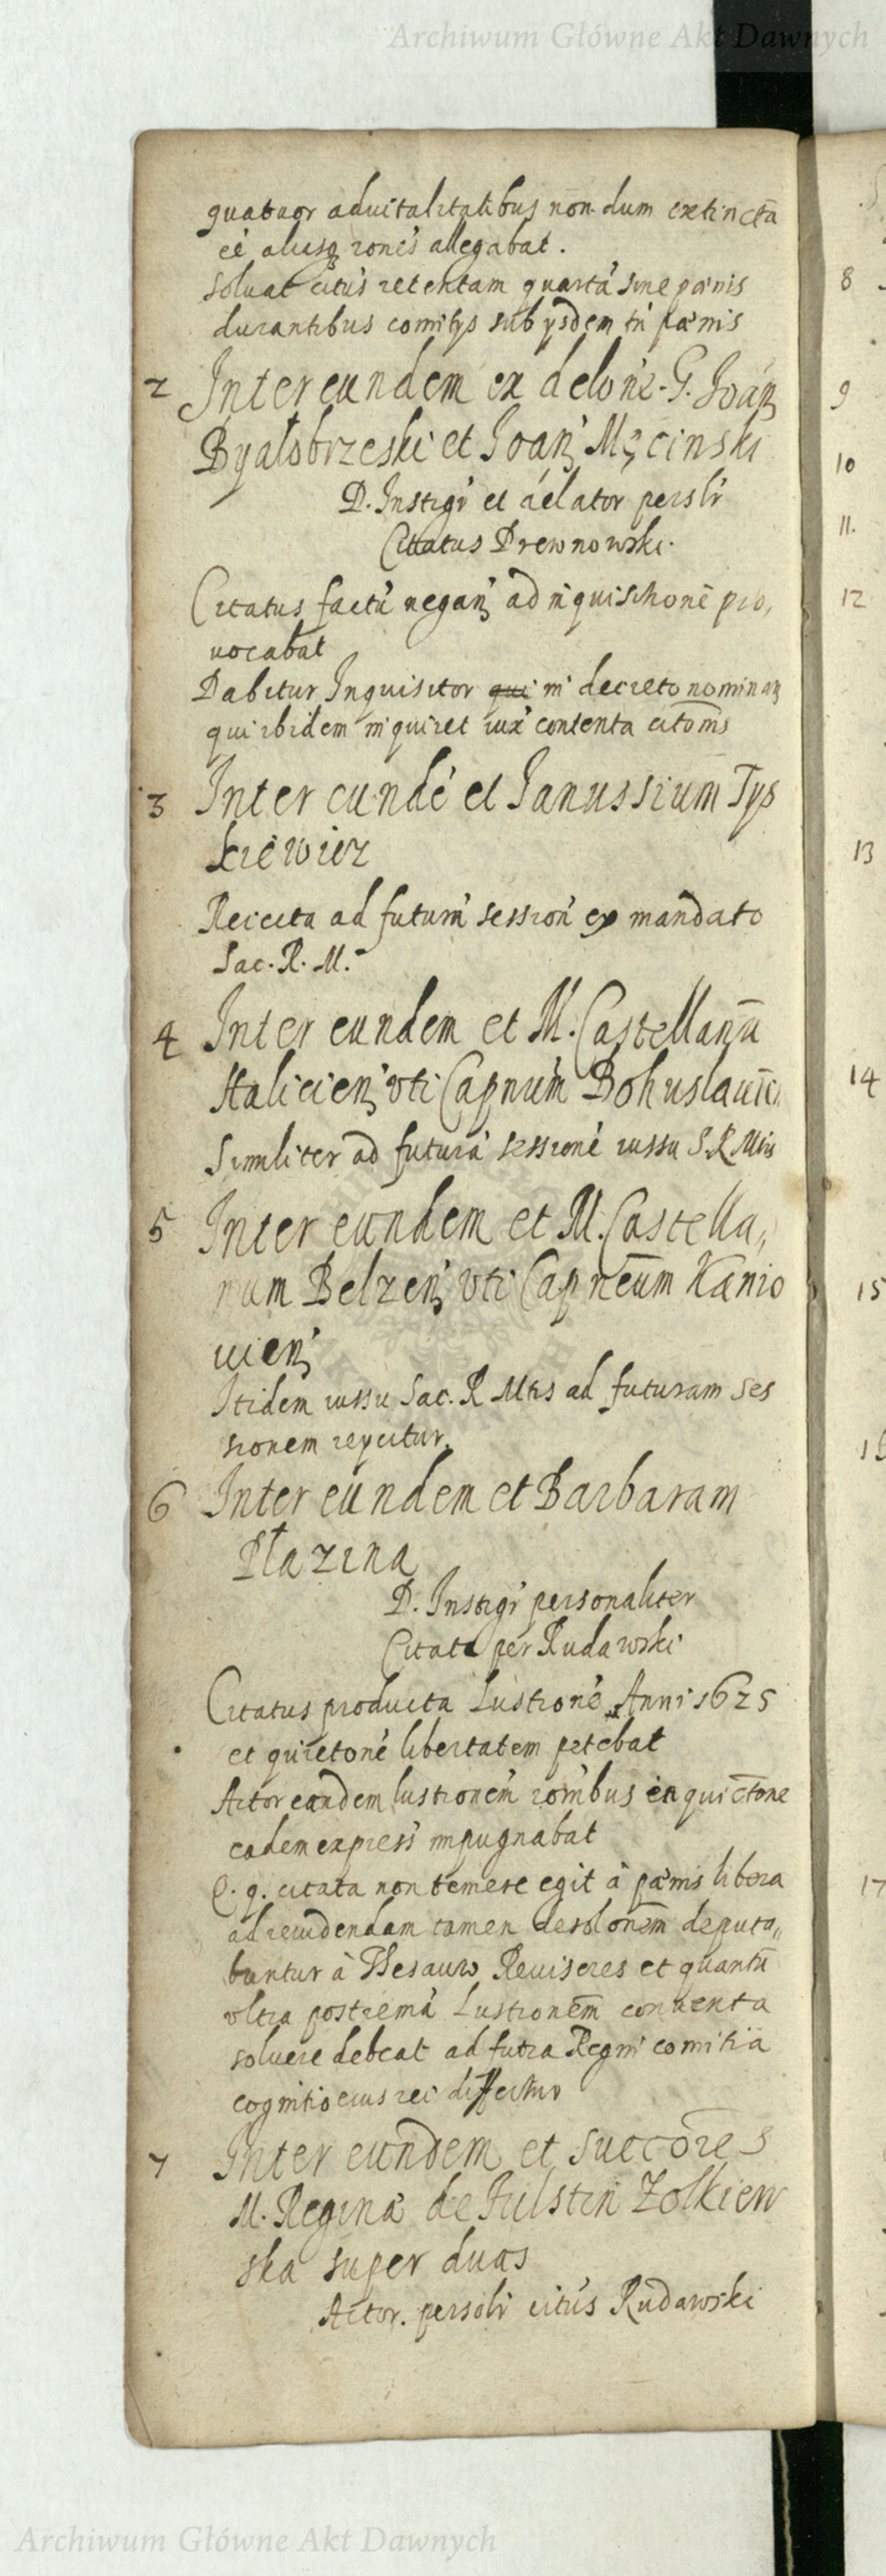 Archiwum Główne Akt Dawnych
quatuor aduitalitatibus non dum extincta
eé aliasq rones allegabat.
soluat citus retentam quartá sine pænis
durantibus comitys sub ysdem tn pænis
2 Inter eundem ex delone G. Joan
Byałobrzeski et Joan Męcinski
D. Instigr et delator perslr
Citatus Drewnowski.
Citatus factú negan ad inquisitioné pro,
uocabat
Dabitur Inquisitor qui in decreto nominan
qui ibidem inquiret iux contenta citoms
3 Inter eundé et Janussium Tys
kiewicz
Reiecta ad futurá session ex mandato
Sac. R. M.
4 Inter eundem et M. Castellanū
Halicien vti Capnum Bohuslauien
Similiter ad futurá sessioné iussu S. R Mtis
5 Inter eundem et M. Castella,,
num Belzen vti Capneum Kanio
uien
Itidem iussu Sac. R Mtis ad futuram ses
sionem reycitur.
6 Inter eundem et Barbaram
Płazina
D. Instigr personaliter
Citata per Rudawski
Citatus producta Lustroné Anni 1625
et quietoné libertatem petebat
Actor eandem lustronem ronibus en quictone
eadem express impugnabat
Q. q. citata non temere egit á pænis libera
ad reuidendam tamen desolonem deputa,,
buntur á Thesauro Reuisores et quantū
vltra postremá Lustronem conuenta
soluere debeat ad futra Regni comitia
cognitio eius rei differtur
7 Inter eundem et succores
M. Regina de Fulstin Zolkiew
ska super duas
Actor. persolr citus Rudawski
8
9
10
11.
12
13
14
15
17
Archiwum Główne Akt Dawnych